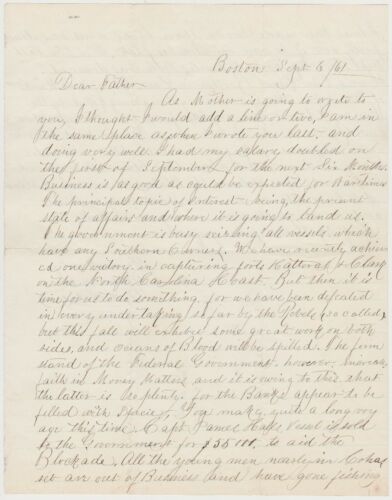 Boston Sept 6 /61
Dear Father
As Mother is going to write to
you, I thought I would add a line or two, I am in
the same place as when I wrote you last, and
doing very well. I had my salary doubled on
the first of September, for the next Six Months
Business is as good as could be expected for War times
The principal topic of interest being the present
state of affairs and where it is going to land us.
The government is busy seizing all vessels which
have any Southern Owners. We have recently achiev
ed one victory, in capturing forts Hatteras & Clark
on the North Carolina Coast. But then it is
time for us to do something, for we have been defeated
in every undertaking so far by the Rebels so called,
but this fall will exhibit some great work on both
sides, and oceans of Blood will be spilled. The firm
stand of the Federal Government, however,
faith in Money Matters and it is owing to this that
the latter is so plenty. for the Banks appear to be
filled with Specie, You make quite a long voy
age this time. Capt
to the Government for $ to aid the
Blockade. All the young men nearly in
set are out of Business and have gone fishing